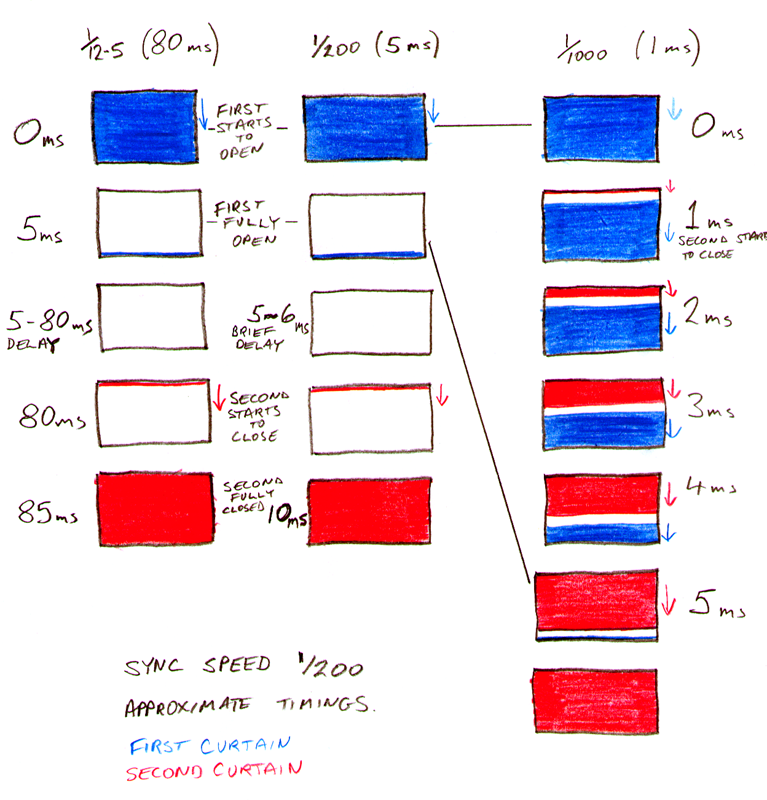 1/12-5 (80ms)
1/200 (5ms)
1/1000 (1ms)
0ms
FIRST
STARTS
TO
OPEN
0ms
5ms
FIRST
FULLY
OPEN
1ms
SECOND START
TO CLOSE
5-80ms
DELAY
5-6ms
BRIEF
DELAY
2ms
80ms
SECOND
STARTS
TO
CLOSE
3ms
85ms
SECOND
FULLY
CLOSED
10ms
4ms
5ms
SYNC SPEED 1/200
APPROXIMATE TIMINGS.
FIRST CURTAIN
SECOND CURTAIN